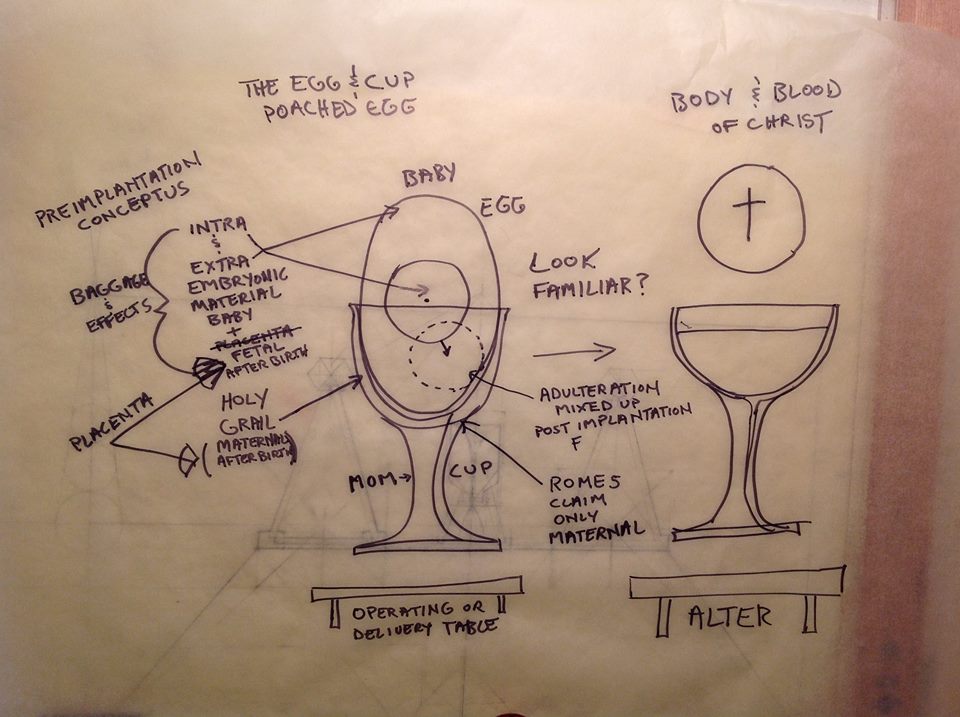 THE EGG & CUP
POACHED EGG
BODY & BLOOD
OF CHRIST
PREIMPLANTATION
CONCEPTUS
BABY
EGG
INTRA
&
EXTRA
EMBRYONIC
MATERIAL
BABY
+
PLACENTA
FETAL
AFTERBIRTH
BAGGAGE
&
EFFECTS
LOOK
FAMILIAR?
PLACENTA
HOLY
GRAIL
(MATERNAL
AFTERBIRTH)
ADULTERATION
MIXED UP
POST IMPLANTATION
F
MOM
CUP
ROMES
CLAIM
ONLY
MATERNAL
OPERATING OR
DELIVERY TABLE
ALTER